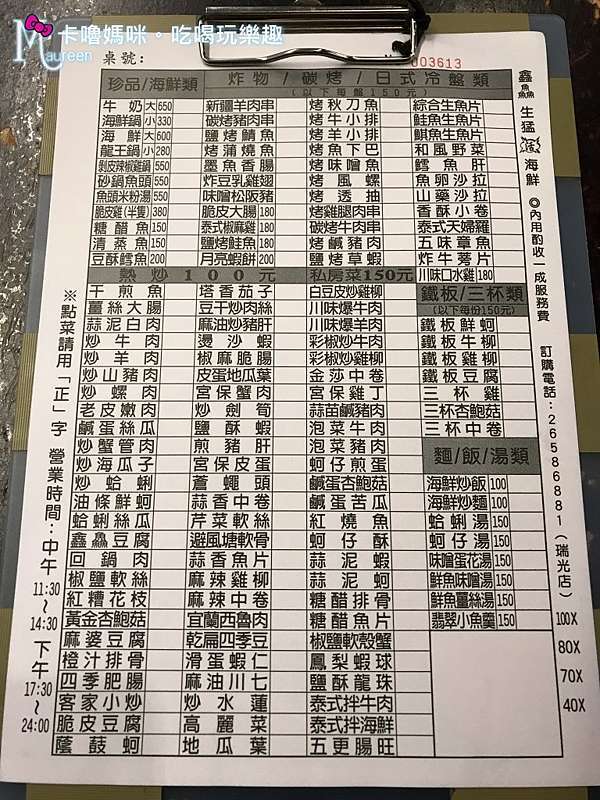 卡嚕媽咪。吃喝玩樂趣
Maureen
桌號：
003613
珍品/海鮮類
炸物/碳烤/日式冷盤類
(以下每盤150元)
牛奶大650 新疆羊肉串 烤秋刀魚 綜合生魚片
海鮮鍋小330 碳烤豬肉串 烤牛小排 鮭魚生魚片
海鮮大600 鹽烤鯖魚 烤羊小排 鯕魚生魚片
龍王鍋小280 烤蒲燒魚 烤魚下巴 和風野菜
剝皮辣椒雞鍋550 墨魚香腸 烤味噌魚 鱈魚肝
砂鍋魚頭550 炸豆乳雞翅 烤風螺 魚卵沙拉
魚頭米粉湯550 味噌松阪豬 烤透抽 山藥沙拉
脆皮雞(半隻)380 脆皮大腸180 烤雞腿肉串 香酥小卷
糖醋魚150 泰式椒麻雞180 碳烤牛肉串 泰式天婦羅
清蒸魚150 鹽烤鮭魚180 烤鹹豬肉 五味章魚
豆酥鱈魚200 月亮蝦餅200 鹽烤草蝦 炸牛蒡片
熱炒100元 私房菜150元 川味口水雞180
干煎魚 塔香茄子 白豆皮炒雞柳 鐵板/三杯類
薑絲大腸 豆干炒肉絲 川味爆牛肉 (以下每份150元)
蒜泥白肉 麻油炒豬肝 川味爆羊肉 鐵板鮮蚵
炒牛肉 燙沙蝦 彩椒炒牛肉 鐵板牛柳
炒羊肉 椒麻脆腸 彩椒炒雞柳 鐵板雞柳
炒山豬肉 皮蛋地瓜葉 金莎中卷 鐵板豆腐
炒螺肉 宮保蟹肉 宮保雞丁 三杯雞
老皮嫩肉 炒劍筍 蒜苗鹹豬肉 三杯杏鮑菇
鹹蛋絲瓜 鹽酥蝦 泡菜牛肉 三杯中卷
炒蟹管肉 煎豬肝 泡菜豬肉 麵/飯/湯類
炒海瓜子 宮保皮蛋 蚵仔煎蛋
炒蛤蜊 蒼蠅頭 鹹蛋杏鮑菇 海鮮炒飯100
油條鮮蚵 蒜香中卷 鹹蛋苦瓜 海鮮炒麵100
蛤蜊絲瓜 芹菜軟絲 紅燒魚 蛤蜊湯150
鑫鱻豆腐 避風塘軟骨 蚵仔酥 蚵仔湯150
回鍋肉 蒜香魚片 蒜泥蝦 味噌蛋花湯150
椒鹽軟絲 麻辣雞柳 蒜泥蚵 鮮魚味噌湯150
紅糟花枝 麻辣中卷 糖醋排骨 鮮魚薑絲湯150
黃金杏鮑菇 宜蘭西魯肉 糖醋魚片 翡翠小魚羹150
麻婆豆腐 乾扁四季豆 椒鹽軟殼蟹
橙汁排骨 滑蛋蝦仁 鳳梨蝦球
四季肥腸 麻油川七 鹽酥龍珠
客家小炒 炒水蓮 泰式拌牛肉
脆皮豆腐 高麗菜 泰式拌海鮮
蔭鼓蚵 地瓜葉 五更腸旺
100X
80X
70X
40X
鑫鱻生猛海鮮 ◎內用酌收一成服務費 訂購電話：26586881（瑞光店）
※點菜請用「正」字 營業時間：中午11:30~14:30 下午17:30~24:00